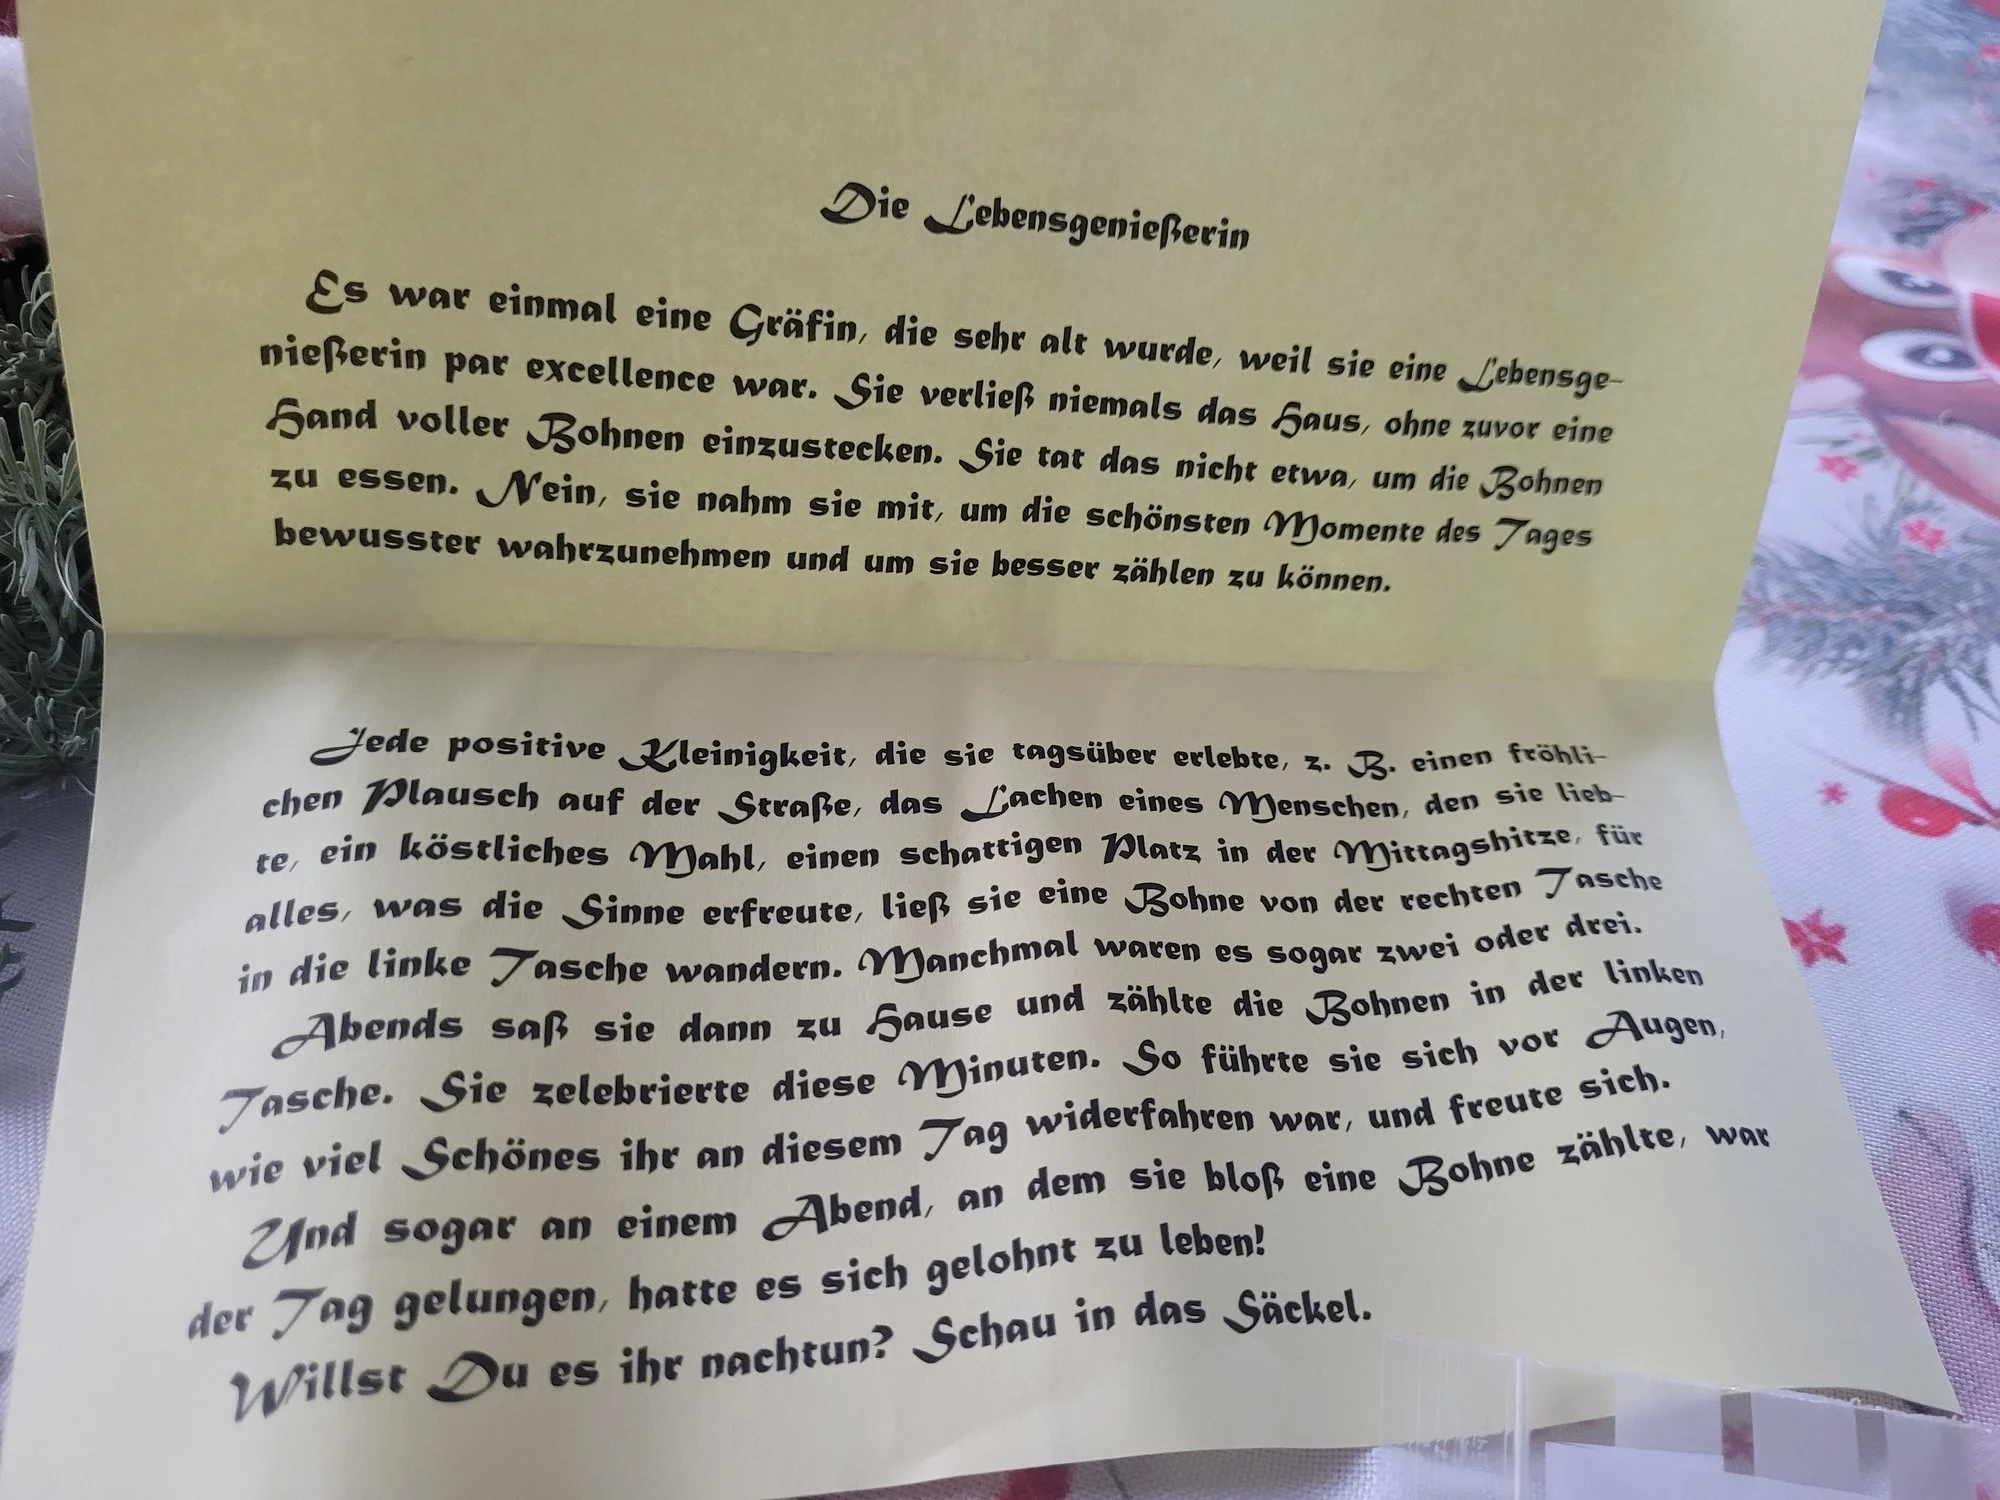 Die Lebensgenießerin
Es war einmal eine Gräfin, die sehr alt wurde, weil sie eine Lebensge-
nießerin par excellence war. Sie verließ niemals das Haus, ohne zuvor eine
Hand voller Bohnen einzustecken. Sie tat das nicht etwa, um die Bohnen
zu essen. Nein, sie nahm sie mit, um die schönsten Momente des Tages
bewusster wahrzunehmen und um sie besser zählen zu können.
Jede positive Kleinigkeit, die sie tagsüber erlebte, z. B. einen fröhli-
chen Plausch auf der Straße, das Lachen eines Menschen, den sie lieb-
te, ein köstliches Mahl, einen schattigen Platz in der Mittagshitze, für
alles, was die Sinne erfreute, ließ sie eine Bohne von der rechten Tasche
in die linke Tasche wandern. Manchmal waren es sogar zwei oder drei.
Abends saß sie dann zu Hause und zählte die Bohnen in der linken
Tasche. Sie zelebrierte diese Minuten. So führte sie sich vor Augen,
wie viel Schönes ihr an diesem Tag widerfahren war, und freute sich.
Und sogar an einem Abend, an dem sie bloß eine Bohne zählte, war
der Tag gelungen, hatte es sich gelohnt zu leben!
Willst Du es ihr nachtun? Schau in das Säckel.